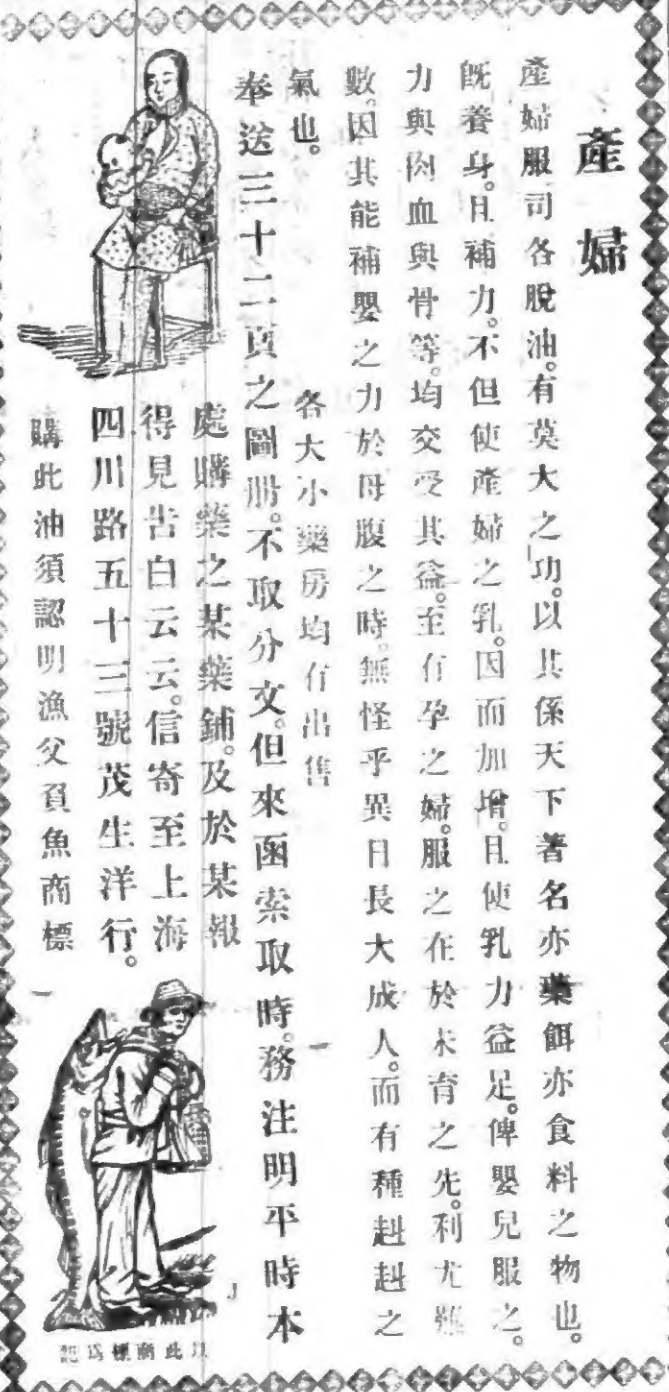 產婦
產婦服司各脫油。有莫大之功。以其係天下著名亦藥餌亦食料之物也。
旣養身。且補力。不但使產婦之乳。因而加增。且使乳力益足。俾嬰兒服之。
力與肉血與骨等。均交受其益。至有孕之婦。服之在於未育之先。利尤
數。因其能補嬰之力於母腹之時。無怪乎異日長大成人。而有種赳赳之
氣也。
各大小藥房均有出售
奉送三十二頁之圖册。不取分文。但來函索取時。務注明平時本
處購藥之某藥鋪。及於某報
得見告白云云。信寄至上海
四川路五十三號茂生洋行。
購此油須認明漁父負魚商標
以此商標爲記